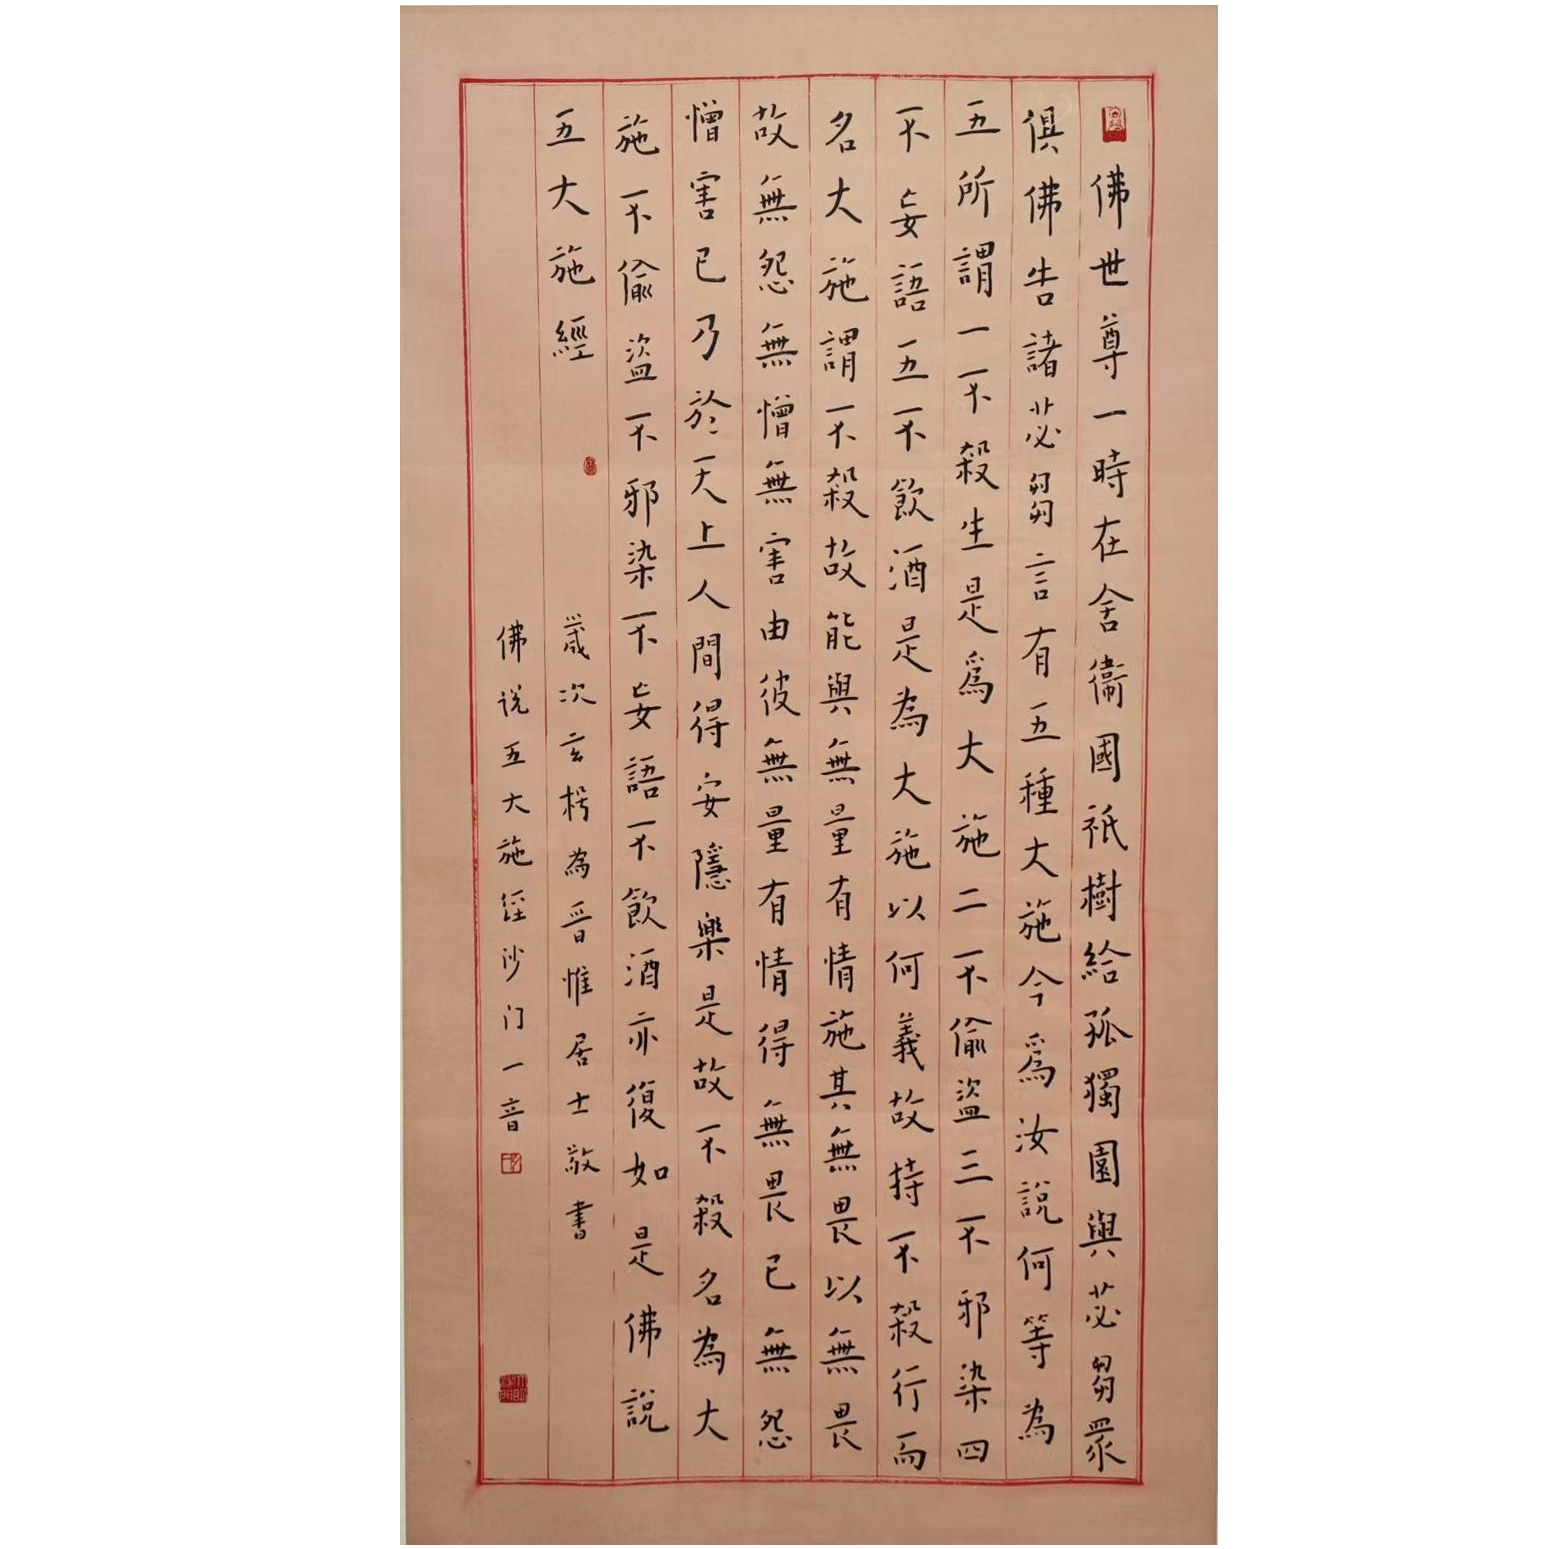 佛世尊一時在舍衞國祇樹給孤獨園與苾芻眾
俱佛告諸苾芻言有五種大施今爲汝說何等為
五所謂一不殺生是爲大施二不偷盜三不邪染四
不妄語五不飲酒是為大施以何義故持不殺行而
名大施謂不殺故能與無量有情施其無畏以無畏
故無怨無憎無害由彼無量有情得無畏已無怨
憎害已乃於天上人間得安隱樂是故不殺名為大
施不偷盜不邪染不妄語不飲酒亦復如是佛說
五大施經
歲次玄枵為晉惟居士敬書
佛说五大施経沙门一音